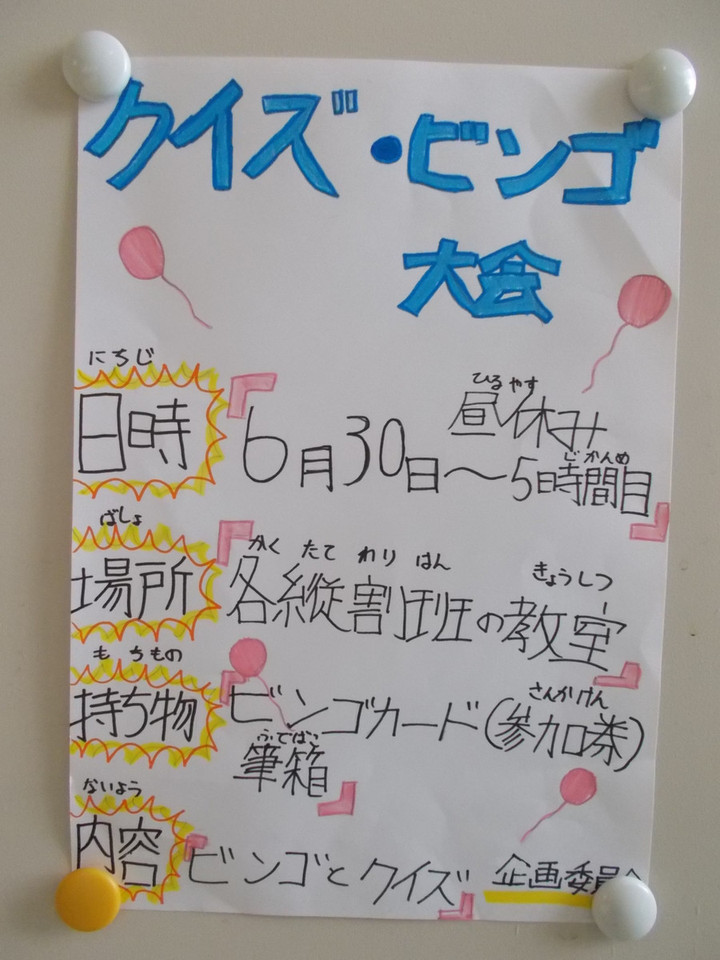 クイズ・ビンゴ
大会
にちじ
日時
ひるやす
昼休み
じかんめ
6月30日〜5時間目
ばしょ
場所
かく たて わり はん きょうしつ
各縦割班の教室
もちもの
持ち物
さんかけん
ビンゴカード(参加券)
ふでばこ
筆箱
ないよう
内容
ビンゴとクイズ
企画委員会